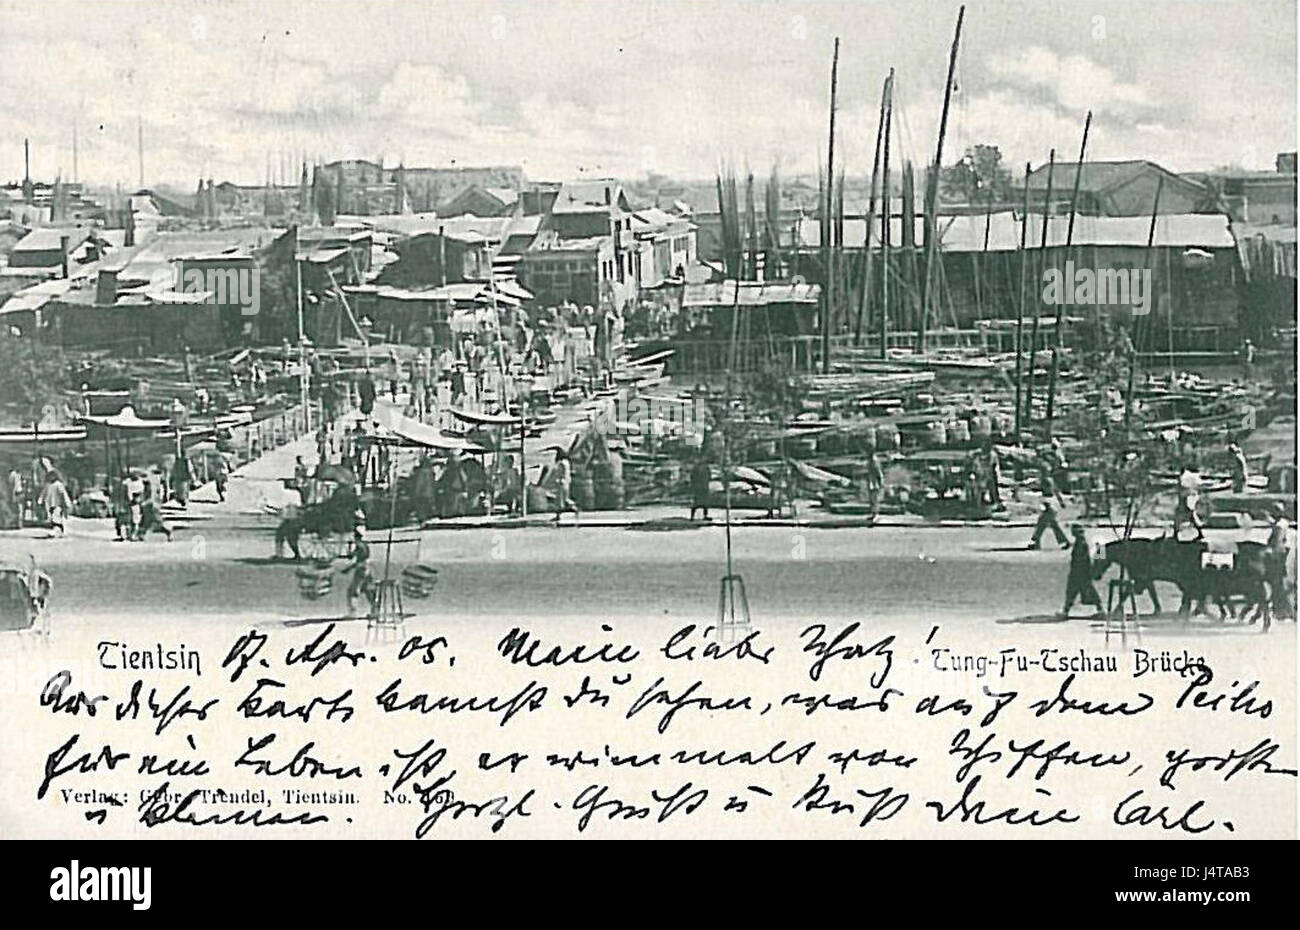 Tientsin 17. Apr. 05. Mein liebe Schatz! Tung-Fu-Tschau Brücke
Aus dieser Karte kannst du sehen, was auf dem Peiho
für ein Leben ist, er wimmelt von Schiffen, großen
Verlag: Gebr. Trendel, Tientsin. No.
u kleinen. Herzl. Gruß u Kuß Dein Carl.
alamy
alamy
Image ID: J4TAB3
www.alamy.com